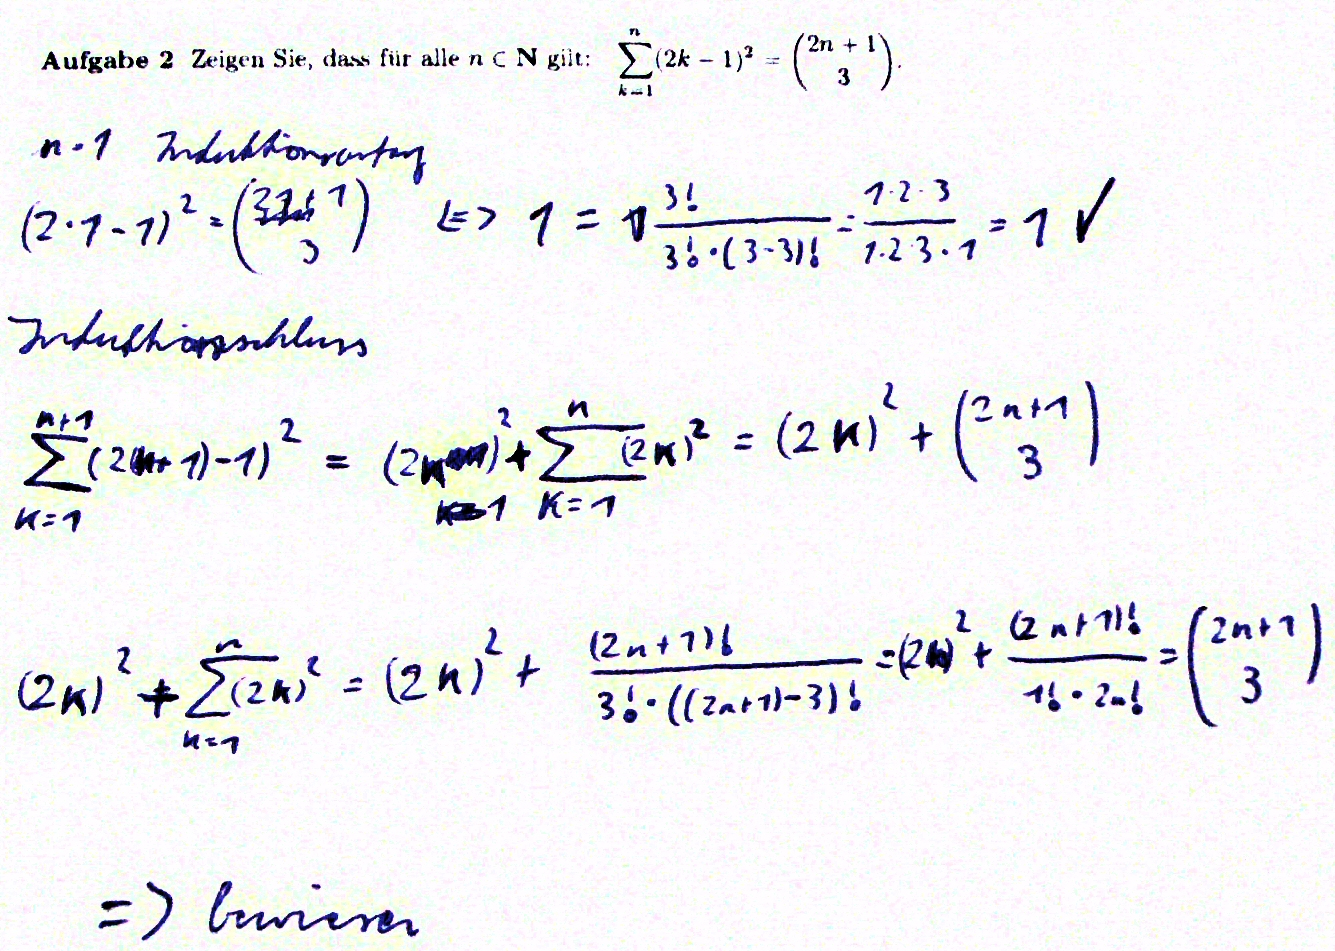 Aufgabe 2 Zeigen Sie, dass für alle n ∈ N gilt: ∑_{k=1}^{n} (2k − 1)² = \binom{2n + 1}{3}.
n = 1 Induktionsanfang
(2·1-1)² = \binom{1}{3} <=> 1 = \frac{3!}{3!·(3-3)!} = \frac{1·2·3}{1·2·3·1} = 1 ✓
Induktionsschluss
∑_{k=1}^{n+1} (2(k+1)-1)² = (2k)² + ∑_{k=1}^{n} (2k)² = (2k)² + \binom{2n+1}{3}
(2k)² + ∑_{k=1}^{n} (2k)² = (2k)² + \frac{(2n+1)!}{3!·((2n+1)-3)!} = (2k)² + \frac{(2n+1)!}{1!·2n!} = \binom{2n+1}{3}
=> bewiesen